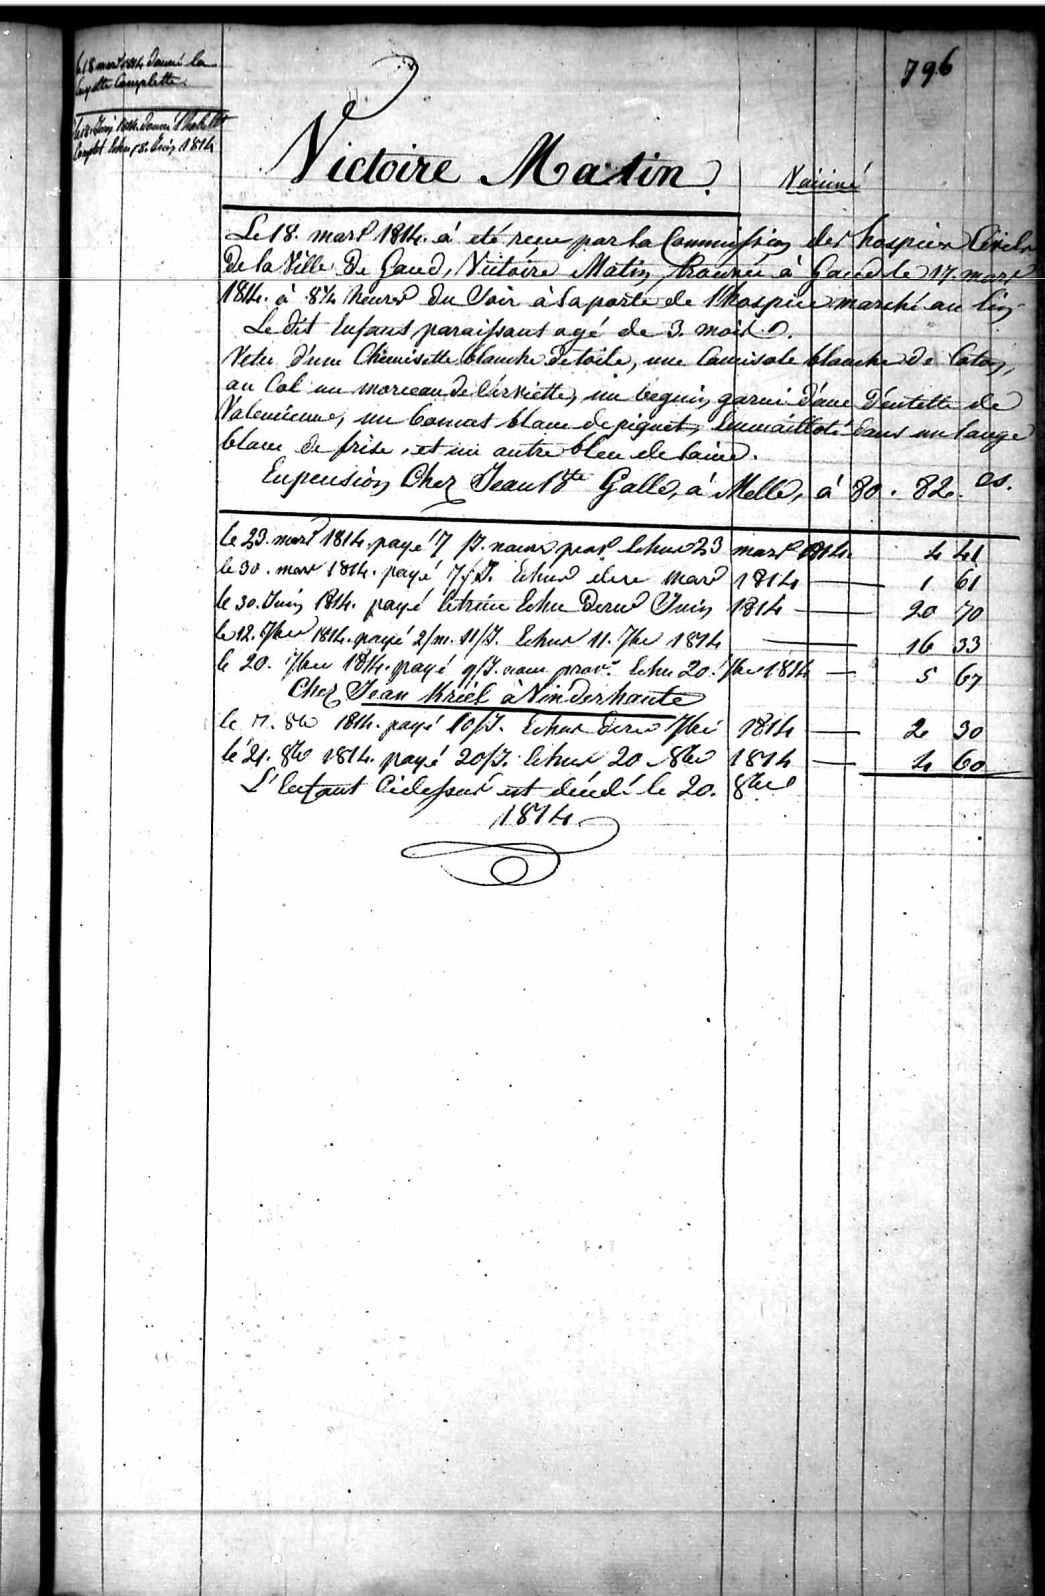 796
Le 18 mars 1814 Donné la
layette Complette.
Le 18. Juin 1814. Donné l'habill
Complet Echu 18. Juin 1814
Victoire Matin.
Vaiciné
Le 18. mars 1814. à eté reçue par la Commission des hospices Civils
De la Ville De Gand, Victoire Matin, trouvée à Gand le 17. mars
1814. à 8 1/4 heures Du Soir à la porte de l'hospice marché au lin
Le Dit Enfant paraissant agé de 3. mois.
Vetu d'une Chemisette blanche de toile, une Camisole blanche de Coton,
au Col un morceau de Serviette, un beguin garni d'une Dentelle de
Valencienne, un bonnet blanc de piquet, Emmailloté dans un lange
blanc de frise, et un autre bleu de laine.
En pension Chez Jean Bte Galle, à Melle, à 80. 82. cs.
le 23. mars 1814. payé 7 p. Echus 23 mars 1814. 4 41
le 30. mars 1814. payé 7/J. Echus mars 1814 1 61
le 30. Juin 1814. payé Echu Dern Juin 1814 20 70
le 12. 7bre 1814. payé 2/m. 11/J. Echus 11. 7bre 1814 16 33
le 20. 7bre 1814. payé 9/J. Echu 20. 7bre 1814 5 67
Chez Jean Kriel à Vinderhaute
le 7. 8bre 1814. payé 10/J. Echus Dern 7bre 1814 2 30
le 21. 8bre 1814. payé 20/J. Echus 20 8bre 1814 4 60
L'Enfant Cidessus est décédé le 20. 8bre
1814